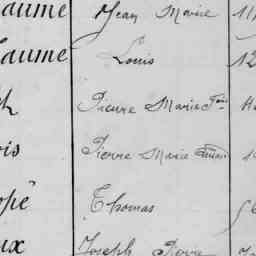 aume Jean Marie 11
aume Louis 12
Pierre Marie
ois Pierre Marie
opé Thomas
ux Joseph Pierre